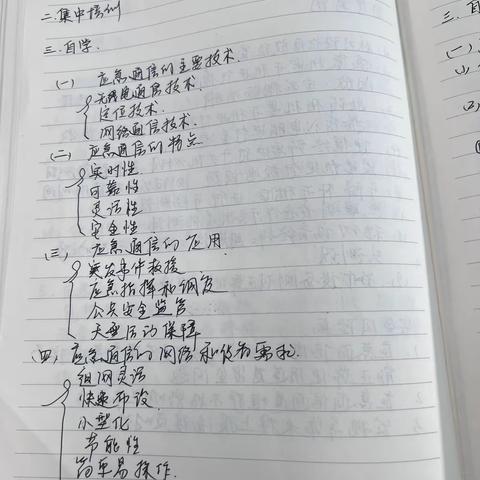 二.集中培训
三.自学.
(一) 应急通信的主要技术.
无线电通信技术.
定位技术.
网络通信技术.
(二) 应急通信的特点
实时性.
可靠性
灵活性
安全性
(三) 应急通信的应用.
突发事件救援
应急指挥和调度
公共安全监管
大型活动保障
(四) 应急通信的网络和设备需求.
组网灵活
快速布设.
小型化
节能性
简单易操作.
三.自
(一)
(1)
(2)